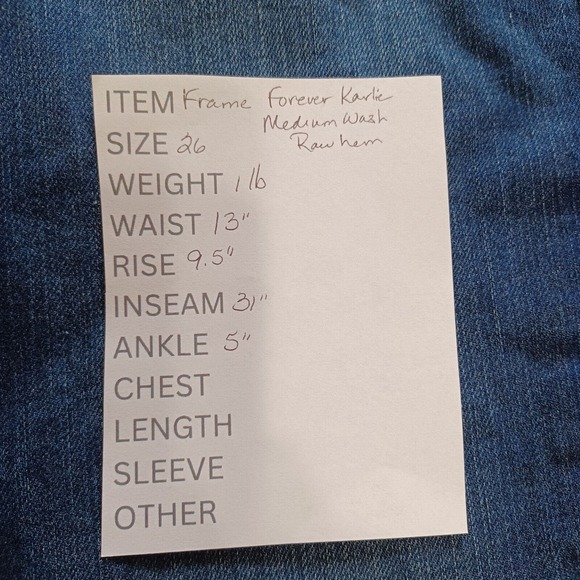 ITEM Frame Forever Karlie
Medium Wash
SIZE 26 Raw hem
WEIGHT 1 lb
WAIST 13"
RISE 9.5"
INSEAM 31"
ANKLE 5"
CHEST
LENGTH
SLEEVE
OTHER